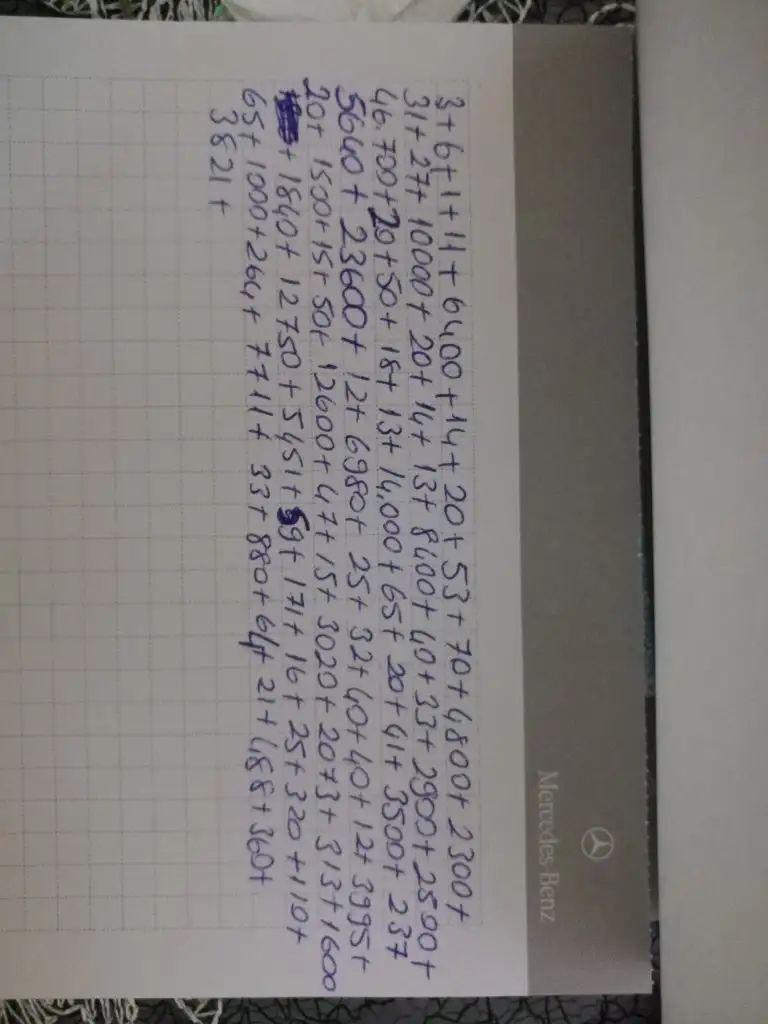 Mercedes-Benz
3+6+1+11+6400+14+20+53+70+4800+2300+
31+27+10000+20+14+13+8400+40+33+2900+2500+
46.700+20+50+18+13+14,000+65+20+41+3500+237
5640+23600+12+6980+25+32+40+40+12+3995+
20+1500+15+50+12600+47+15+3020+2073+313+1600
+1840+12750+5451+59+171+16+25+320+110+
65+1000+264+7711+33+880+64+21+488+360+
3821+